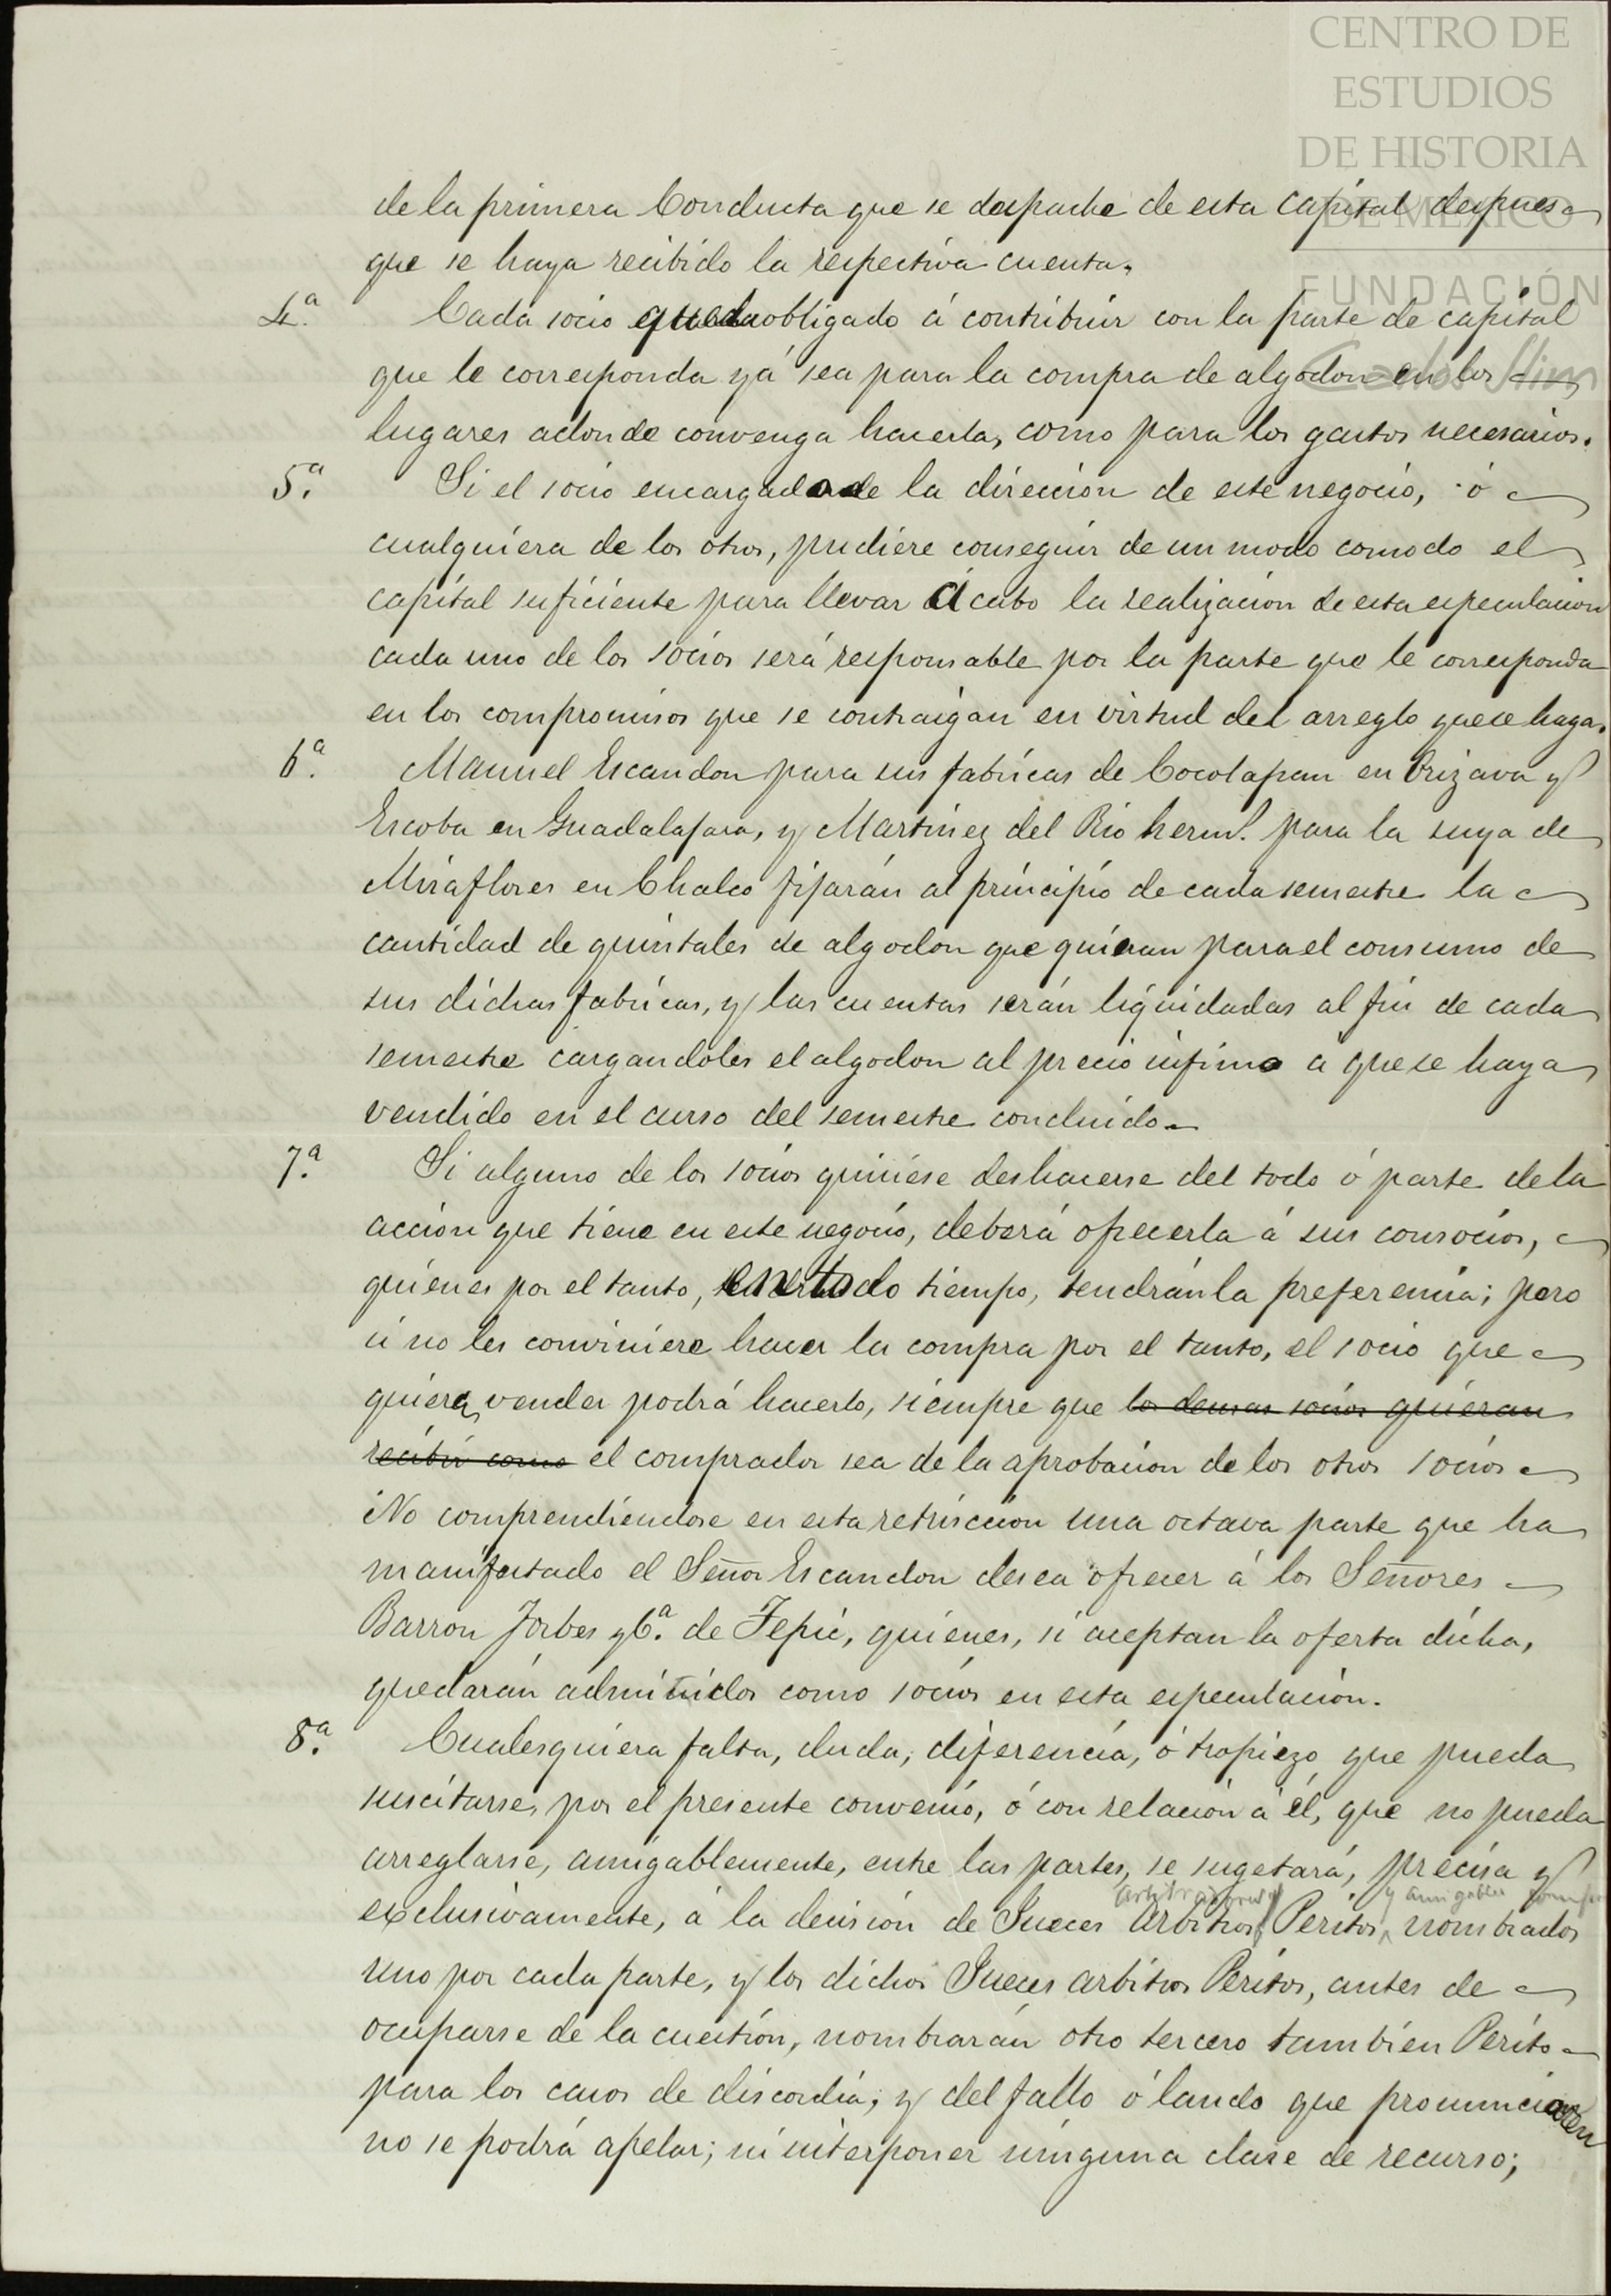 CENTRO DE
ESTUDIOS
DE HISTORIA
DE MÉXICO
FUNDACIÓN
Carlos Slim
de la primera Conducta que se despache de esta capital despues
que se haya recibido la respectiva cuenta.
4.ª Cada socio queda obligado á contribuir con la parte de capital
que le corresponda yá sea para la compra de algodon en los
lugares adonde convenga hacerla, como para los gastos necesarios.
5.ª Si el socio encargado de la direccion de este negocio, ó
cualquiera de los otros, pudiere conseguir de un modo comodo el
capital suficiente para llevar á cabo la realizacion de esta especulacion
cada uno de los socios será responsable por la parte que le corresponda
en los compromisos que se contraigan en virtud del arreglo que se haga.
6.ª Manuel Escandon para sus fabricas de Cocolapan en Orizava y
Escoba en Guadalajara, y Martinez del Rio herm.s para la suya de
Miraflores en Chalco fijarán al principio de cada semestre la
cantidad de quintales de algodon que quieran para el consumo de
sus dichas fabricas, y las cuentas serán liquidadas al fin de cada
semestre cargandoles el algodon al precio infimo a que se haya
vendido en el curso del semestre concluido.
7.ª Si alguno de los socios quisiese deshacerse del todo ó parte de la
accion que tiene en este negocio, deberá ofrecerla á sus consocios,
quienes por el tanto, en todo tiempo, tendrán la preferencia; pero
si no les conviniere hacer la compra por el tanto, el socio que
quiera vender podrá hacerlo, siempre que los demas socios quieran
recibir como el comprador sea de la aprobacion de los otros socios
No comprendiendose en esta retriccion una octava parte que ha
manifestado el Señor Escandon desea ofrecer á los Señores
Barron Forbes y C.ª de Tepic, quienes, si aceptan la oferta dicha,
quedarán admitidos como socios en esta especulacion.
8.ª Cualesquiera falta, duda, diferencia, ó tropiezo que pueda
suscitarse, por el presente convenio, ó con relacion á él, que no pueda
arreglarse, amigablemente, entre las partes, se sugetará, precisa y
y amigables
exclusivamente, á la decision de Jueces arbitros Peritos, nombrados
uno por cada parte, y los dichos Jueces arbitros Peritos, antes de
ocuparse de la cuestion, nombrarán otro tercero tambien Perito
para los casos de discordia; y del fallo ó laudo que pronunciaren
no se podrá apelar; ni interponer ninguna clase de recurso;